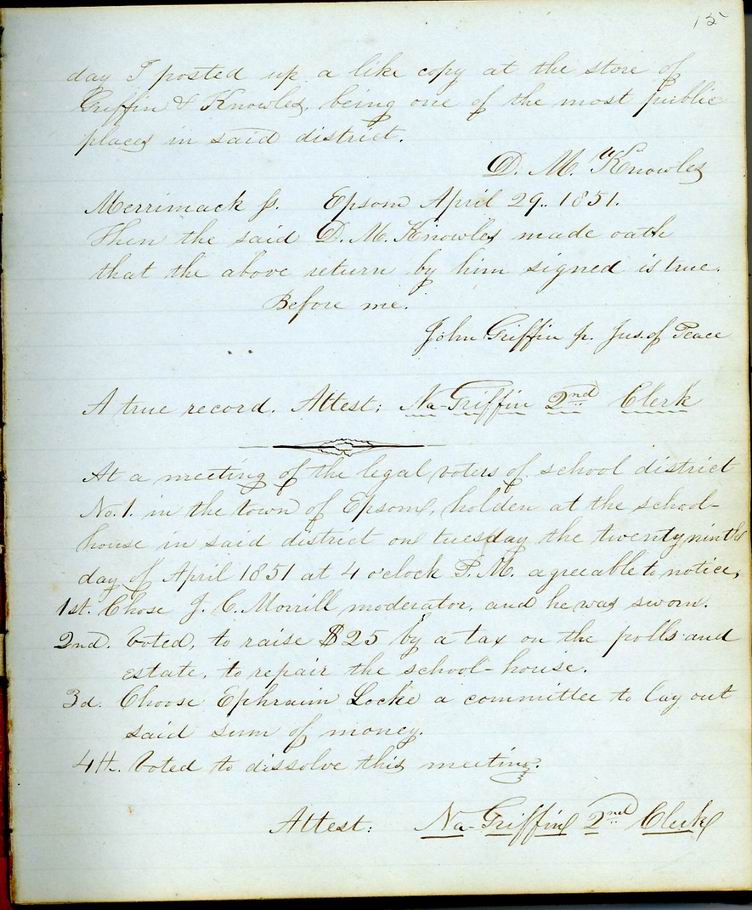 15
day I posted up a like copy at the store of
Griffin & Knowles, being one of the most public
places in said district.
D. M. Knowles
Merrimack ss. Epsom April 29. 1851.
Then the said D. M. Knowles made oath
that the above return by him signed is true.
Before me.
John Griffin Jus. of Peace
A true record. Attest: Na. Griffin 2nd Clerk
At a meeting of the legal voters of school district
No. 1. in the town of Epsom, holden at the school-
house in said district on tuesday the twenty ninth
day of April 1851 at 4 o'clock P.M. agreeable to notice,
1st. Chose J. C. Morrill moderator, and he was sworn.
2nd. Voted, to raise $25 by a tax on the polls and
estate, to repair the school-house.
3d. Choose Ephraim Locke a committee to lay out
said sum of money.
4th. Voted to dissolve this meeting.
Attest: Na. Griffin 2nd Clerk